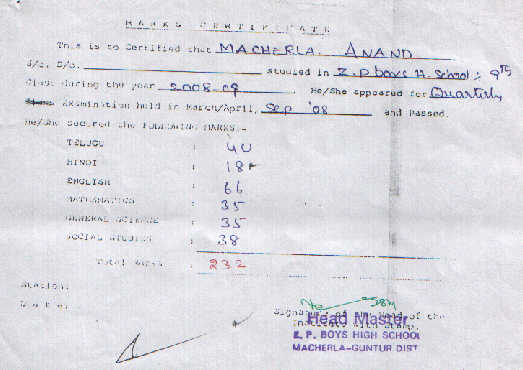 MARKS CERTIFICATE
This is to Certified that MACHERLA. ANAND
S/o. D/o. studied in Z.P boys H. School; 9th
Class during the year 2008-09 He/She appeared for Quarterly
Examination held in March/April, Sep '08 and Passed.
He/She secured the FOLLOWING MARKS:-
TELUGU : 40
HINDI : 18
ENGLISH : 66
MATHEMATICS : 35
GENERAL SCIENCE : 35
SOCIAL STUDIES : 38
TOTAL MARKS : 232
Station:
Date:
Signature of the Head of the
Institute with Stamp.
Head Master
Z. P. BOYS HIGH SCHOOL
MACHERLA-GUNTUR DIST